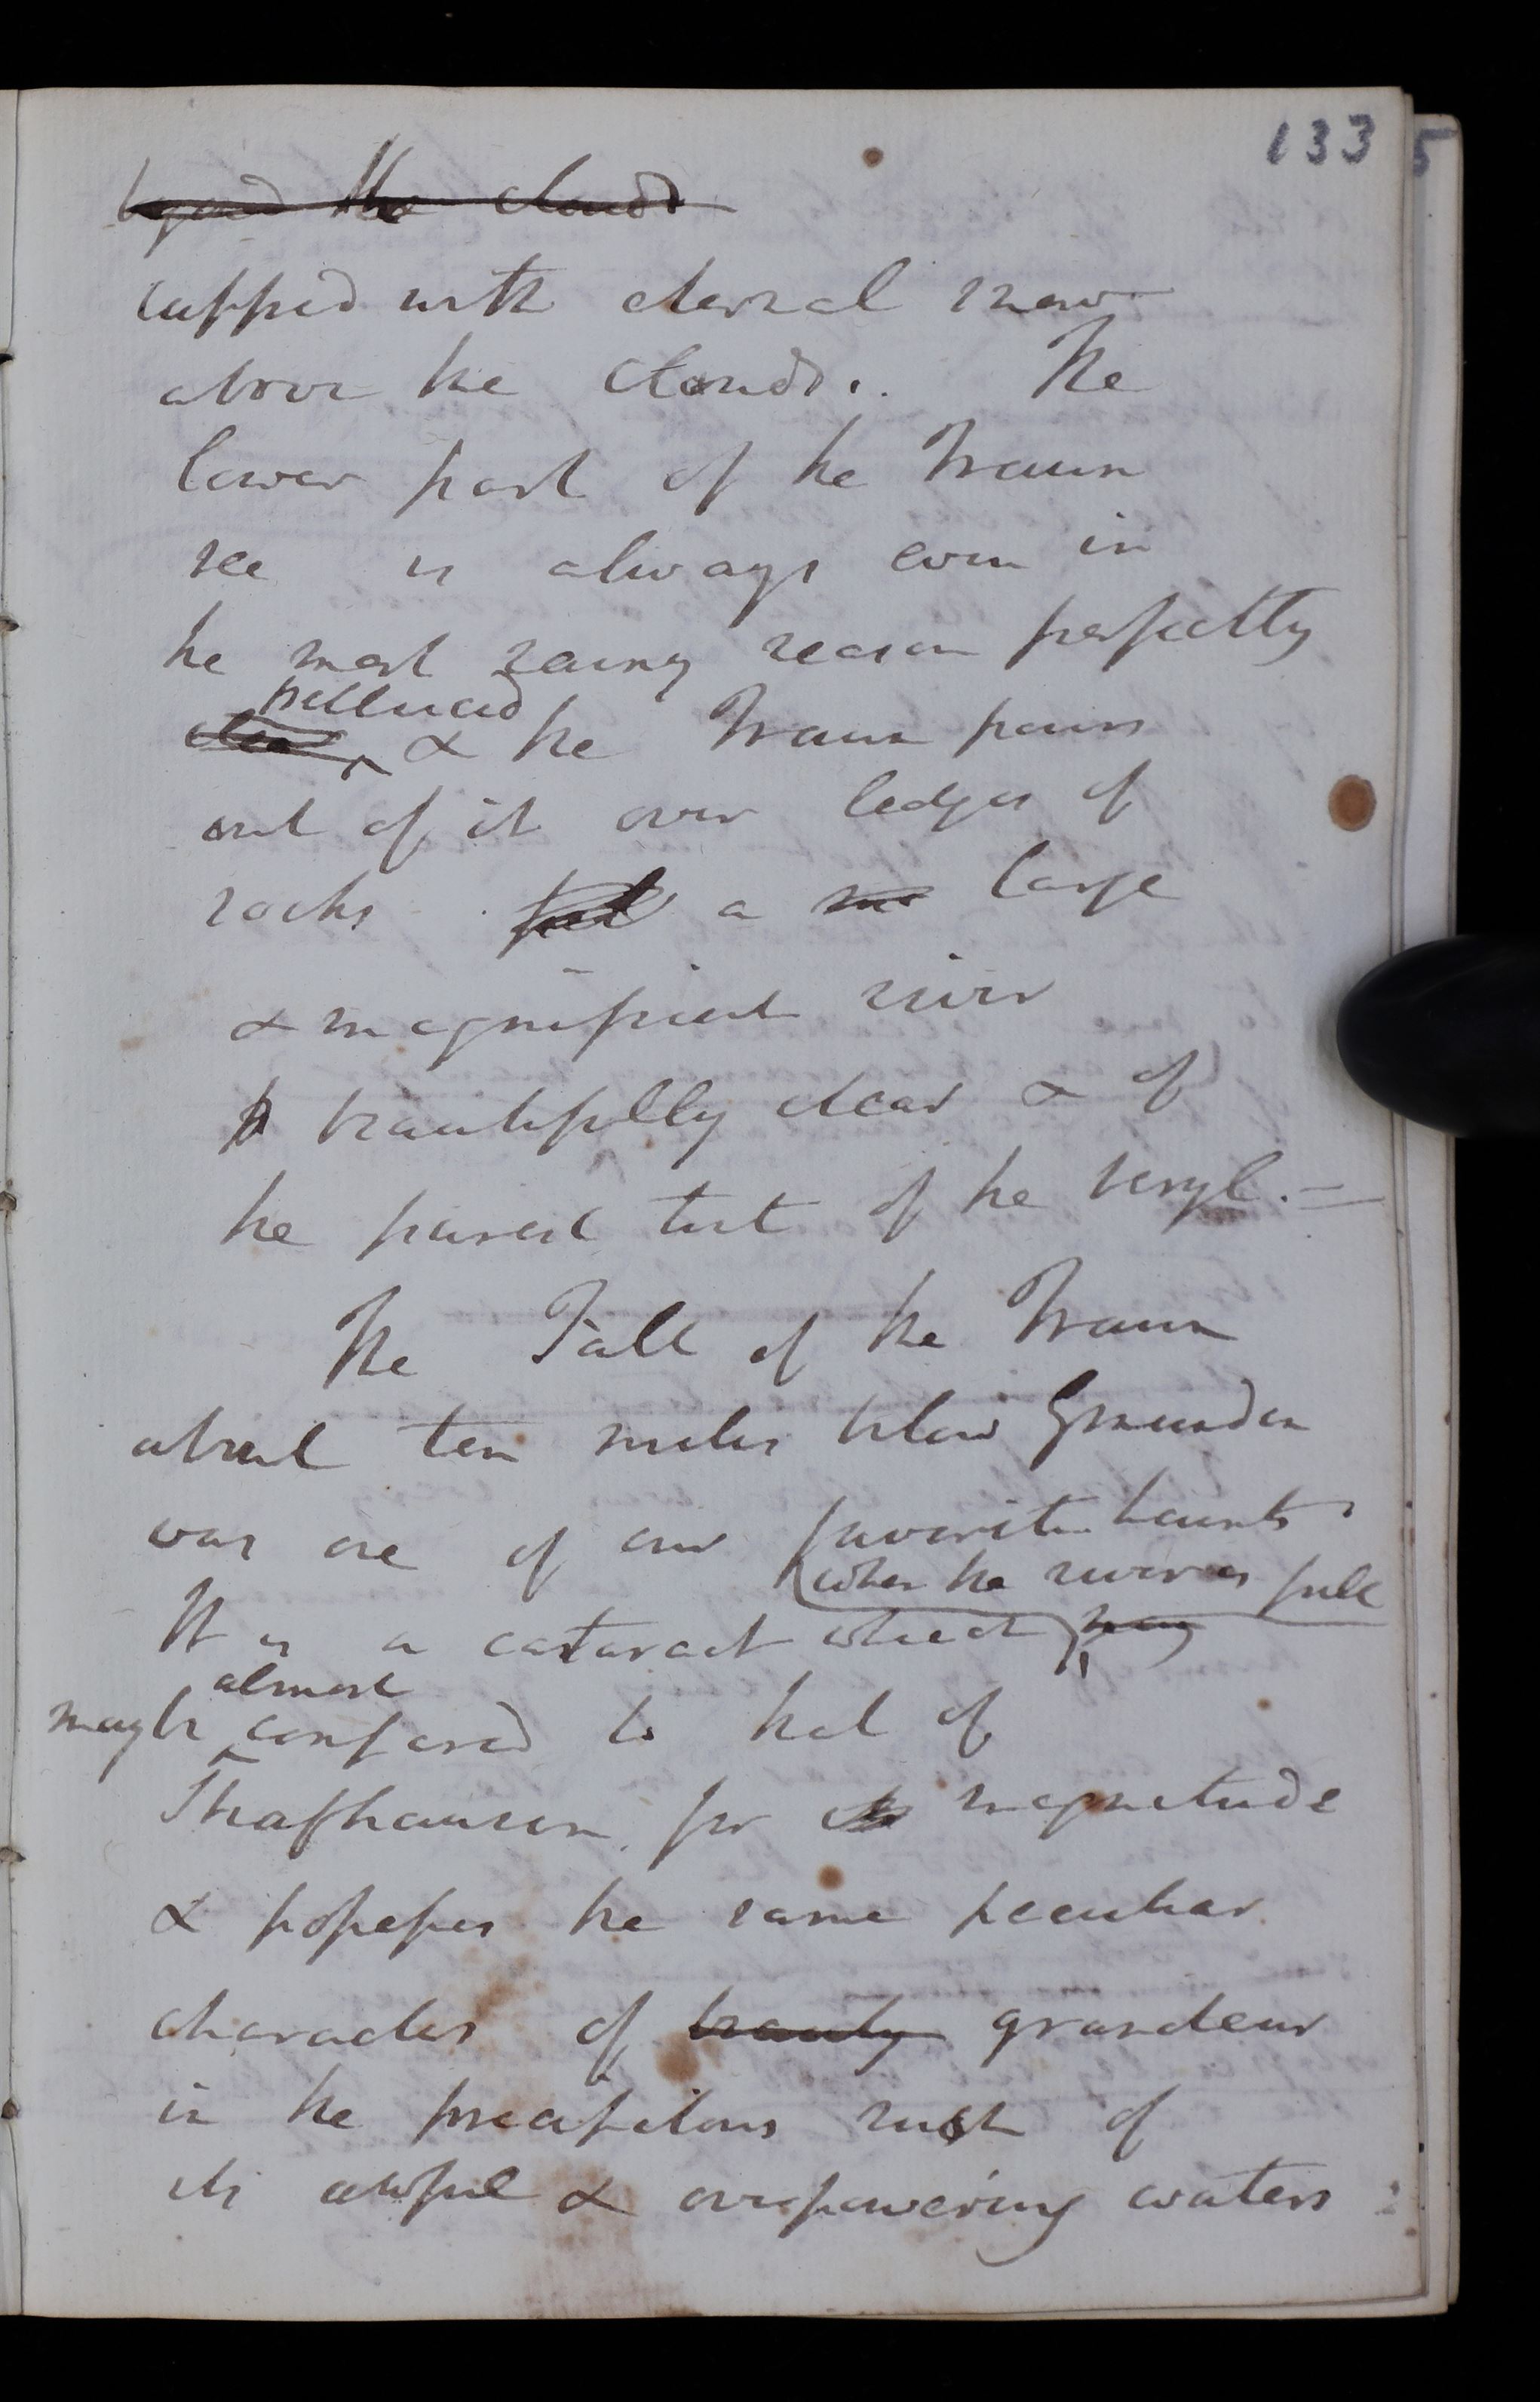 133
5
beyond the clouds
capped with eternal snow
above the clouds. The
lower part of the Traun
see is always even in
the most rainy season perfectly
pellucid
clear & the Traun pours
out of it over ledges of
rocks a large
& magnificent river
beautifully clear & of
the purest tint of the beryl. =
The Fall of the Traun
about ten miles below Gmunden
was one of our favorite haunts
when the river is full
It is a cataract which may
almost
may be compared to that of
Shafhausen for its magnitude
& possesses the same peculiar
characters of beauty grandeur
in the precipitous rush of
its awful & overpowering waters